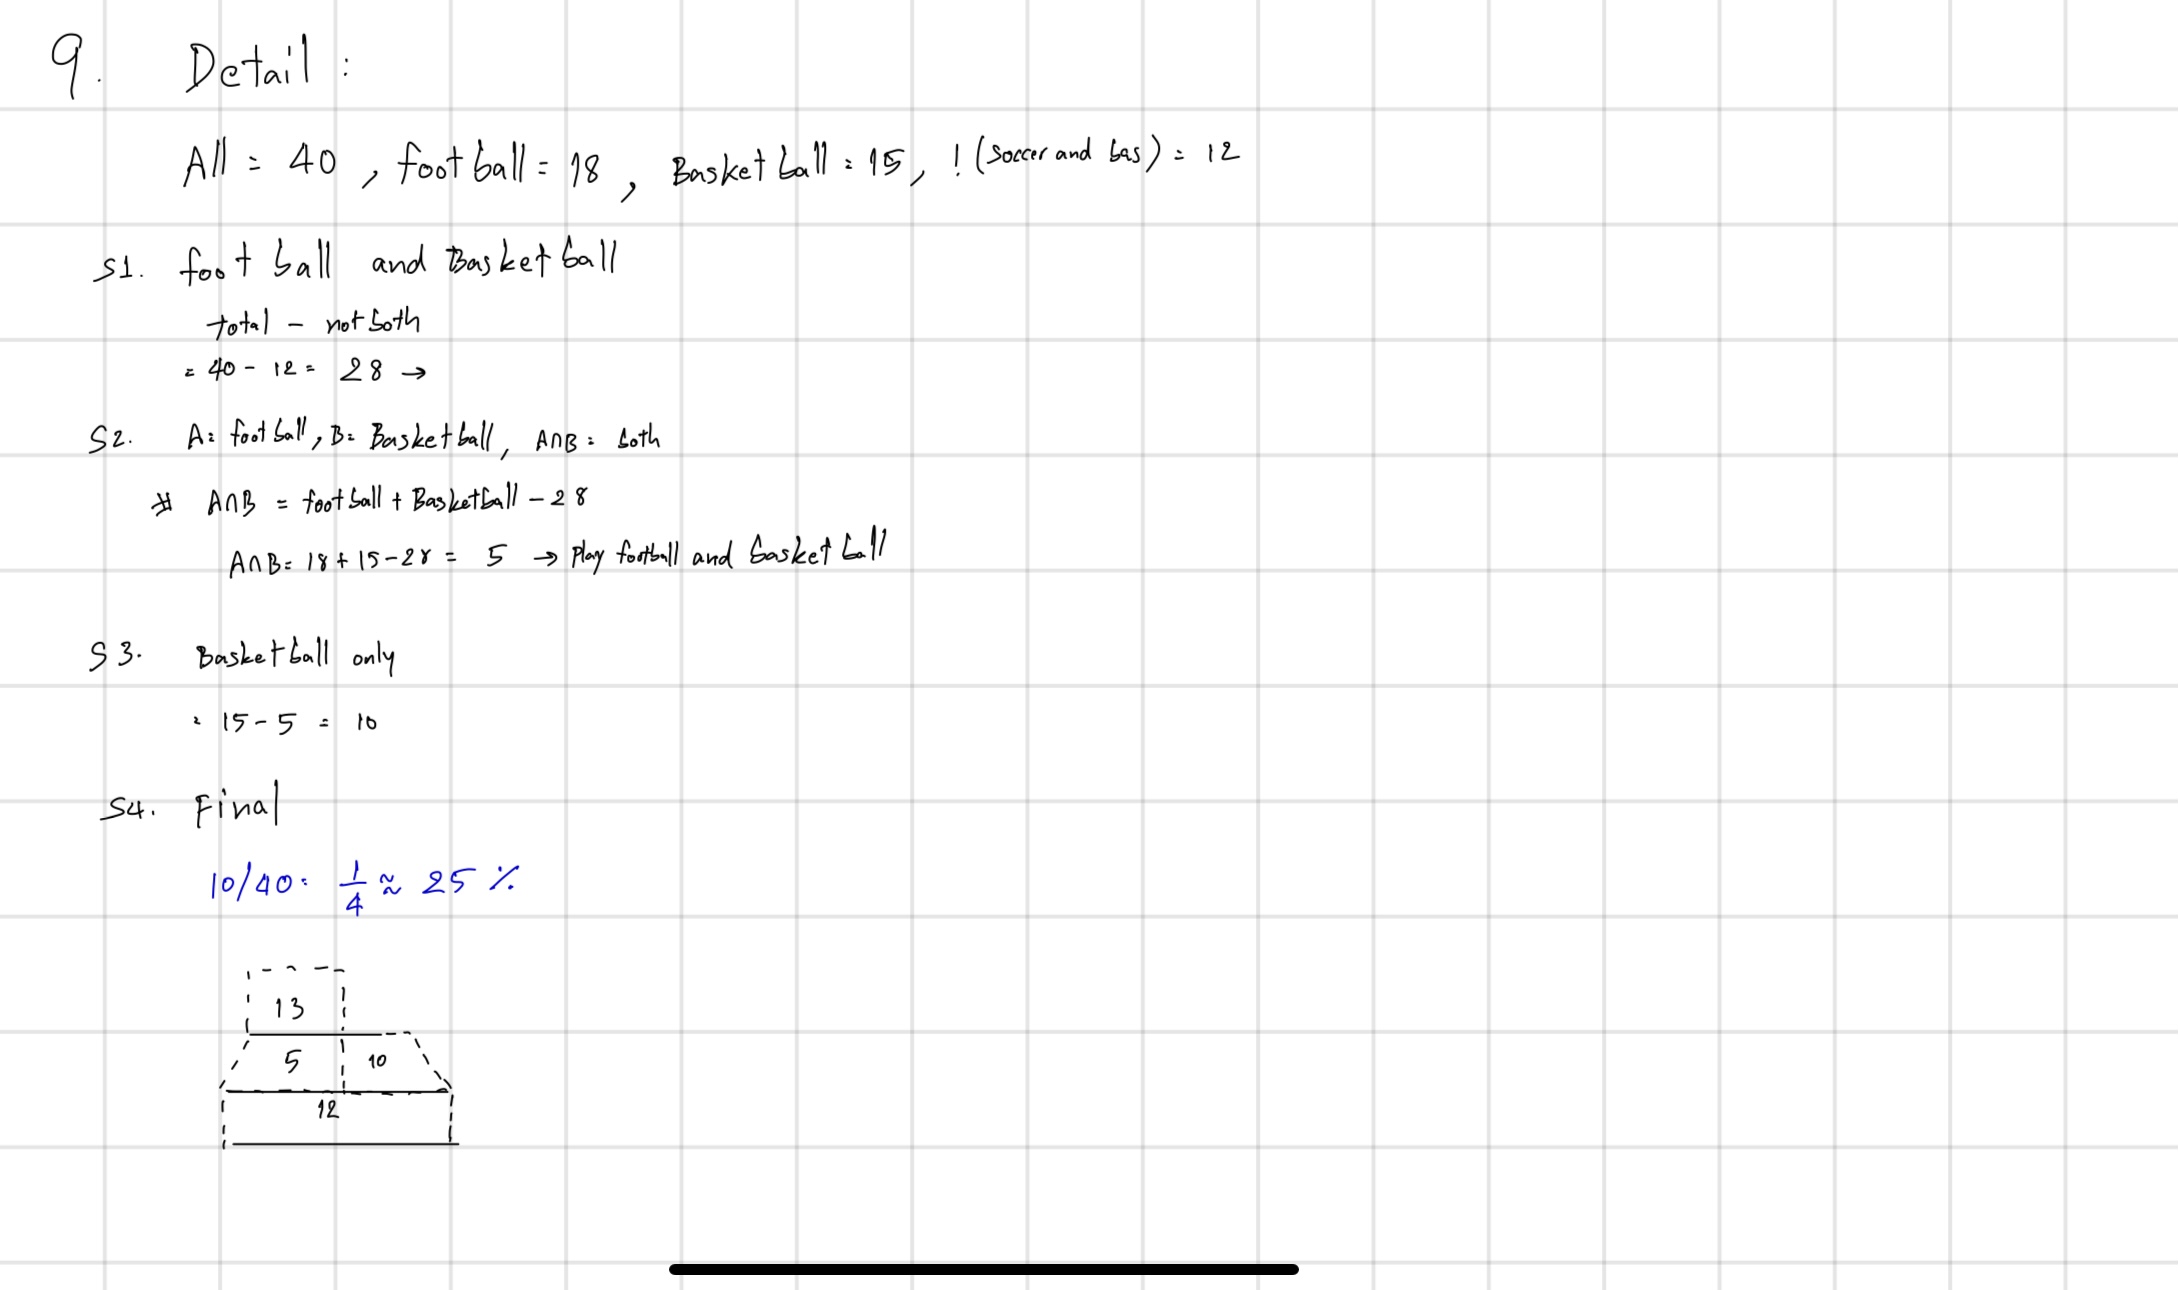 9. Detail :
All = 40 , football = 18 , Basketball = 15, ! (soccer and bas) = 12
S1. foot ball and Basketball
total - not both
= 40 - 12 = 28 →
S2. A = football, B = Basketball, A∩B = both
* A∩B = football + Basketball - 28
A∩B = 18 + 15 - 28 = 5 → Play football and basketball
S3. Basketball only
= 15 - 5 = 10
S4. Final
10/40 = 1/4 ≈ 25 %
13
5 10
12